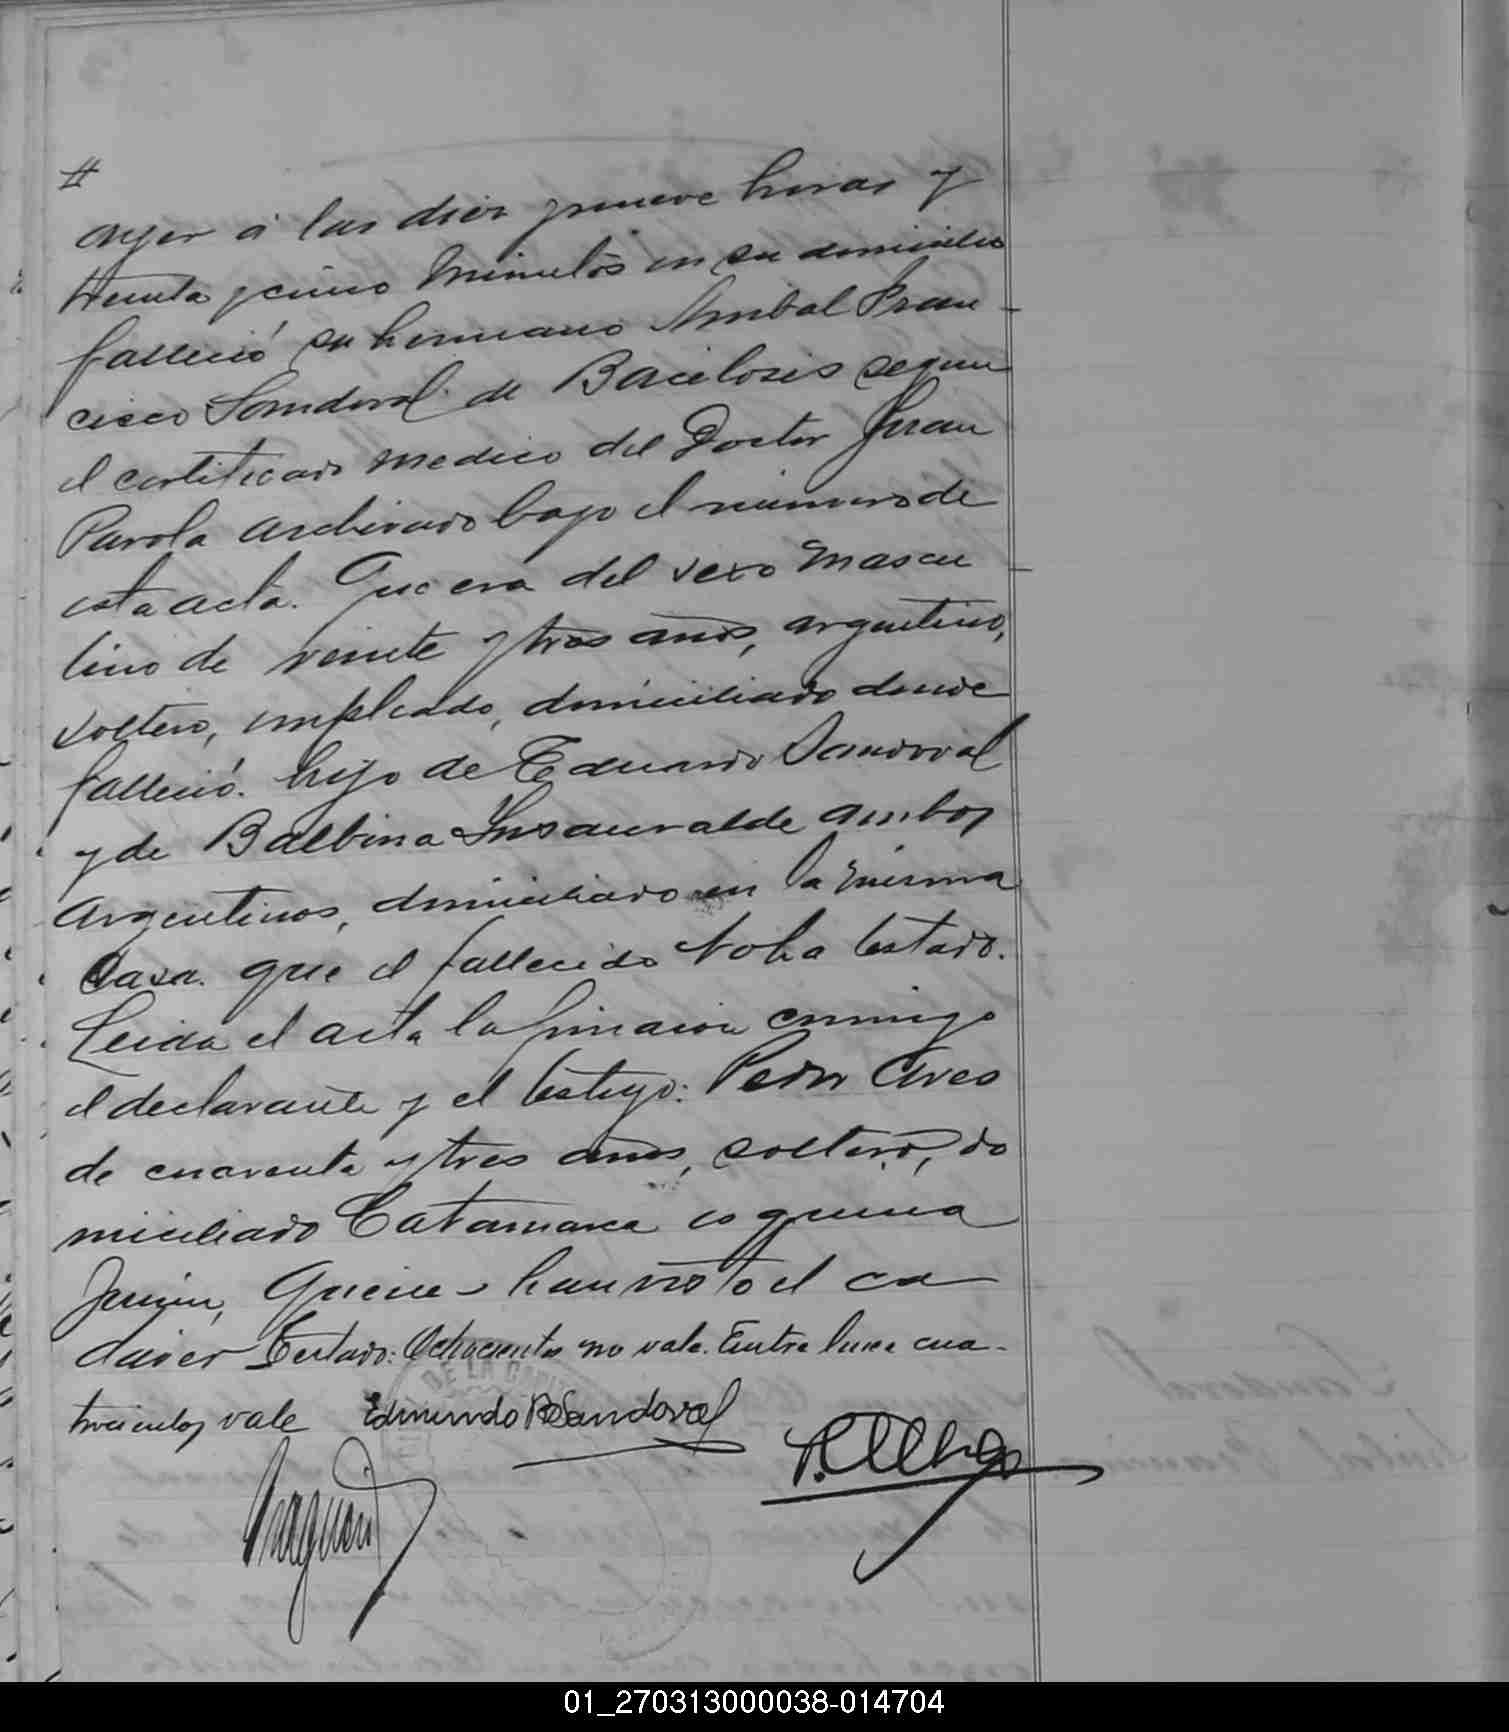 #
ayer á las diez y nueve horas y
treinta y cinco minutos en su domicilio
falleció su hermano Anibal Fran-
cisco Sandoval de Bacilosis segun
el certificado medico del Doctor Juan
Parola archivado bajo el numero de
esta acta. Que era del sexo mascu
lino de veinte y tres años, argentino,
soltero, empleado, domiciliado donde
falleció. hijo de Eduardo Sandoval
y de Balbina Insauralde ambos
Argentinos, domiciliado en la misma
Casa. que el fallecido No ha testado.
Leida el acta la firmaron conmigo
el declarante y el testigo: Pedro
de cuarenta y tres años, soltero, do
miciliado Catamarca esquina
Junin, Quienes han visto el ca
daver Testado: Ochocientos no vale. Entre linea cua-
trocientos vale Edmundo R Sandoval
DE LA CAPITAL
01_270313000038-014704